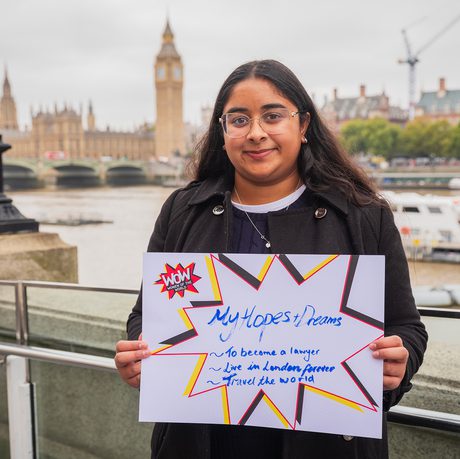 WOW
WOMEN OF THE WORLD
My Hopes + Dreams
~ To become a lawyer
~ Live in London forever
~ Travel the world